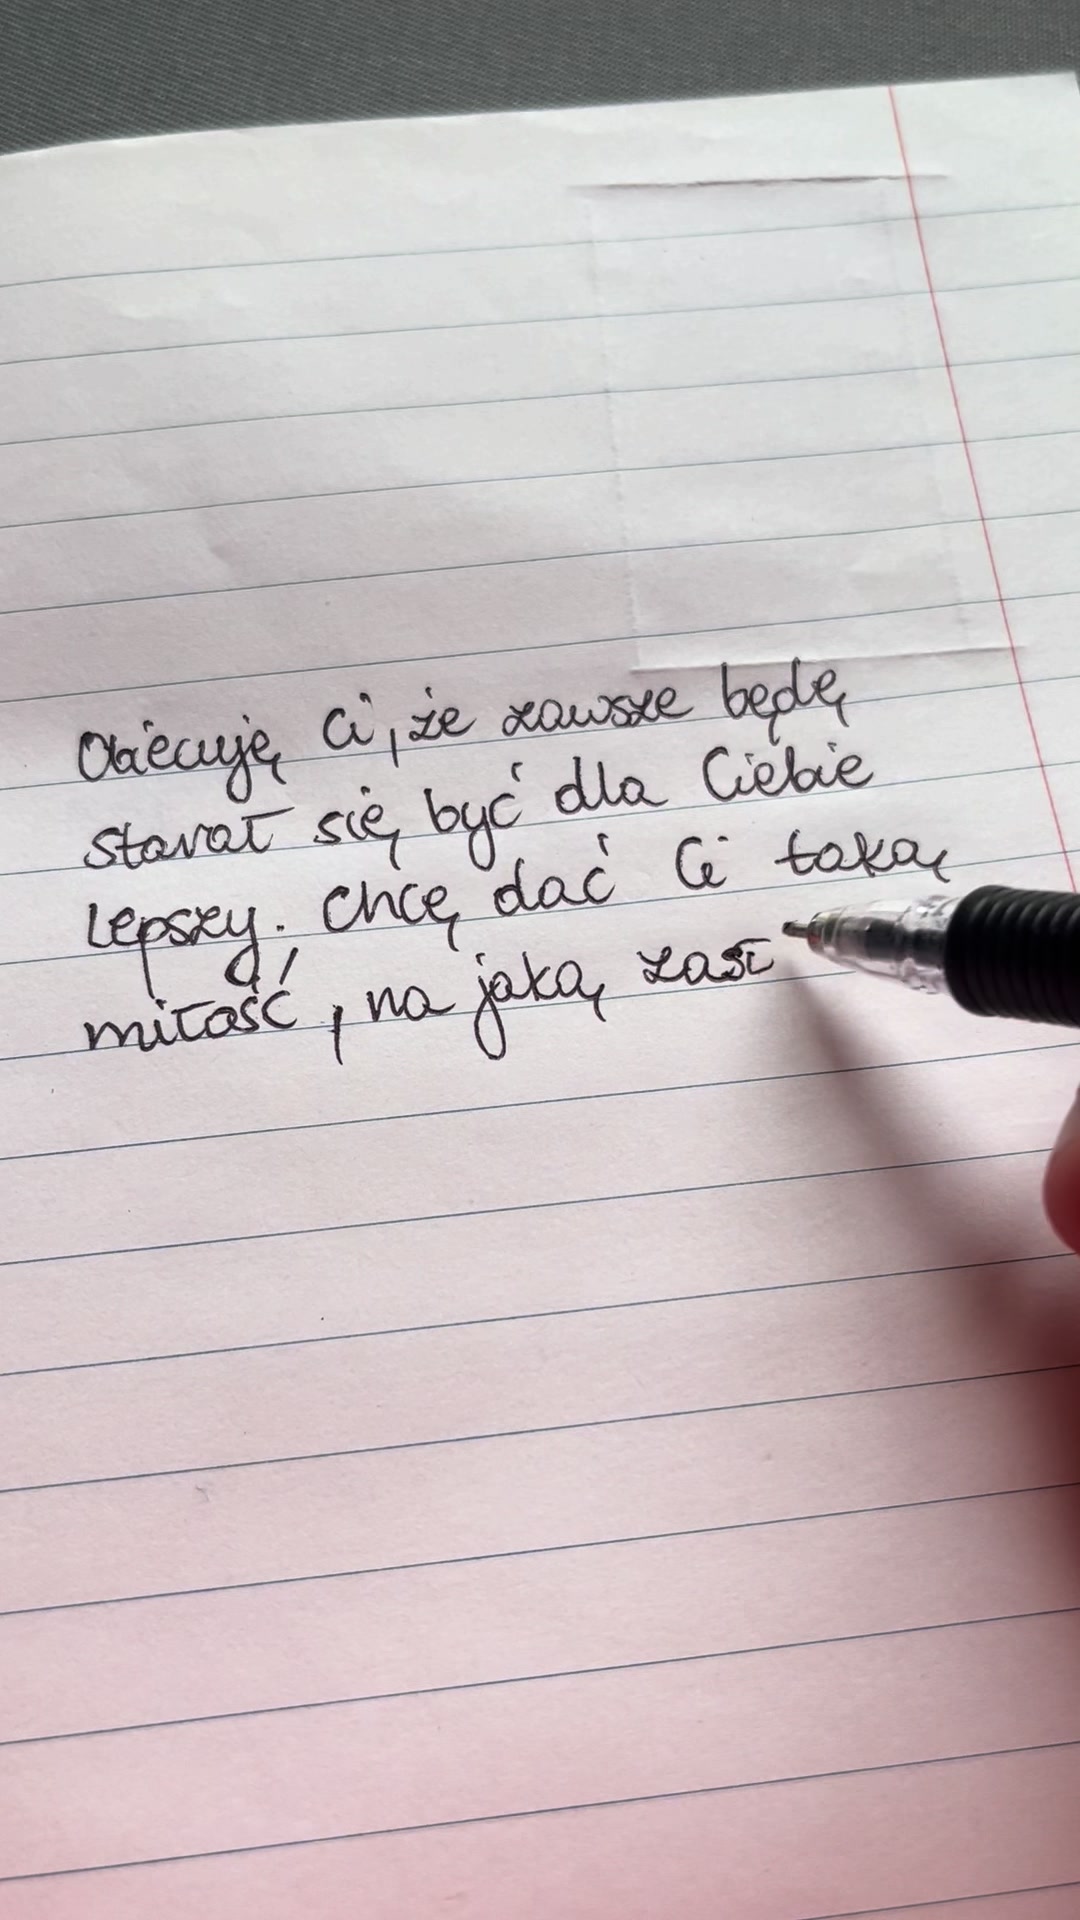 Obiecuję Ci, że zawsze będę
starał się być dla Ciebie
lepszy. Chcę dać Ci taką
miłość, na jaką zasł